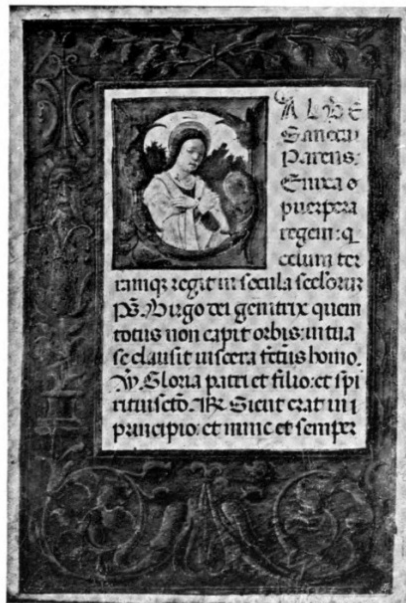 SALVE
Sancta
Parens:
Enixa
puerpera
regem: q
celum ter
ramq; regit in secula seclorum
Ps. Virgo dei genitrix quem
totus non capit orbis: in tua
se clausit uiscera fctus homo.
V. Gloria patri et filio: et spi
ritui scto. R. Sicut erat in
principio: et nunc et semper